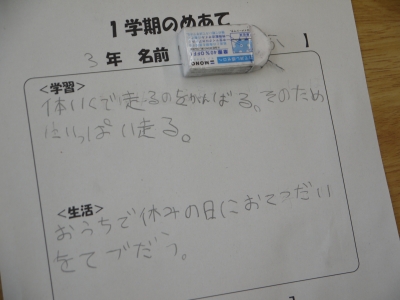 1学期のめあて
3年 名前 】
<学習>
体いくで走るのをがんばる。そのため
にいっぱい走る。
<生活>
おうちで休みの日におてつだい
をてつだう。